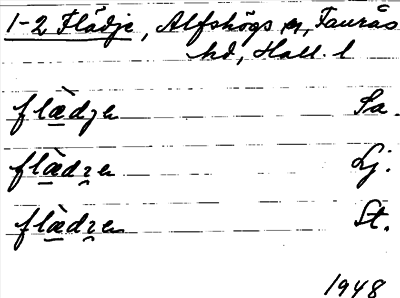 1-2 Flädje, Alfshögs sn, Faurås
hd, Hall. l
flæ̀dʒen Sa.
flæ̀dʒen Lj.
flæ̀dʒen St.
1948